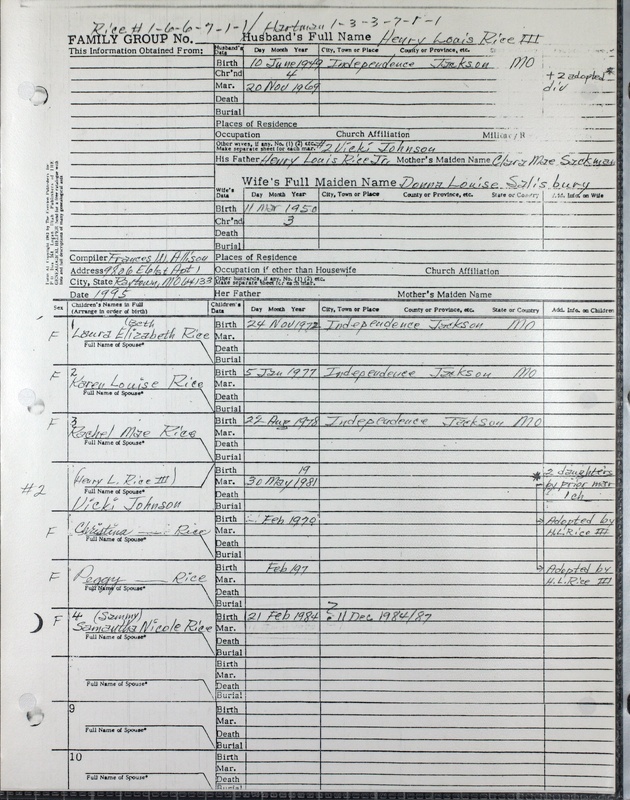 Rice # 1-6-6-7-1-1/ Hartman 1-3-3-7-5-1
FAMILY GROUP No. Husband's Full Name Henry Louis Rice III
This Information Obtained From: Husband's Data Day Month Year City, Town or Place County or Province, etc.
Birth 10 June 1949 Independence Jackson MO
Chr'nd 4 + 2 adopted*
Mar. 20 Nov 1969 div
Death
Burial
Places of Residence
Occupation Church Affiliation
Other wives, if any. No. (1) (2) etc. Make separate sheet for each mar. #2 Vicki Johnson
His Father Henry Louis Rice Jr. Mother's Maiden Name Clara Mae
Wife's Full Maiden Name Donna Louise Salisbury
Wife's Data Day Month Year City, Town or Place County or Province, etc. State or Country Add. Info. on Wife
Birth 11 Mar 1950
Chr'nd 3
Death
Burial
Compiler Frances W. Allison Places of Residence
Address 9806 E 61st Apt 1 Occupation if other than Housewife Church Affiliation
City, State Raytown, MO 64133 Other husbands, if any. No. (1) (2) etc. Make separate sheet for each mar.
Date 1995 Her Father Mother's Maiden Name
Sex Children's Names in Full (Arrange in order of birth) Children's Data Day Month Year City, Town or Place County or Province, etc. State or Country Add. Info. on Children
1 (Beth) Birth 24 Nov 1972 Independence Jackson MO
F Laura Elizabeth Rice Mar.
Full Name of Spouse* Death
Burial
2 Birth 5 Jan 1977 Independence Jackson MO
F Karen Louise Rice Mar.
Full Name of Spouse* Death
Burial
3 Birth Aug 1978 Independence Jackson MO
F Rachel Mae Rice Mar.
Full Name of Spouse* Death
Burial
Birth 19 * 2 daughters
(Henry L. Rice III) Mar. 30 May 1981 by prior mar
#2 Full Name of Spouse* Death
Vicki Johnson Burial
Birth Feb 1979 Adopted by
F Christina Rice Mar. H.L. Rice III
Full Name of Spouse* Death
Burial
Birth Feb 197 Adopted by
F Peggy Rice Mar. H.L. Rice III
Full Name of Spouse* Death
Burial
4 (Sammy) Birth 21 Feb 1984 ? 11 Dec 1984/87
F Samantha Nicole Rice Mar.
Full Name of Spouse* Death
Burial
Birth
Mar.
Full Name of Spouse* Death
Burial
9 Birth
Mar.
Full Name of Spouse* Death
Burial
10 Birth
Mar.
Full Name of Spouse* Death
Burial